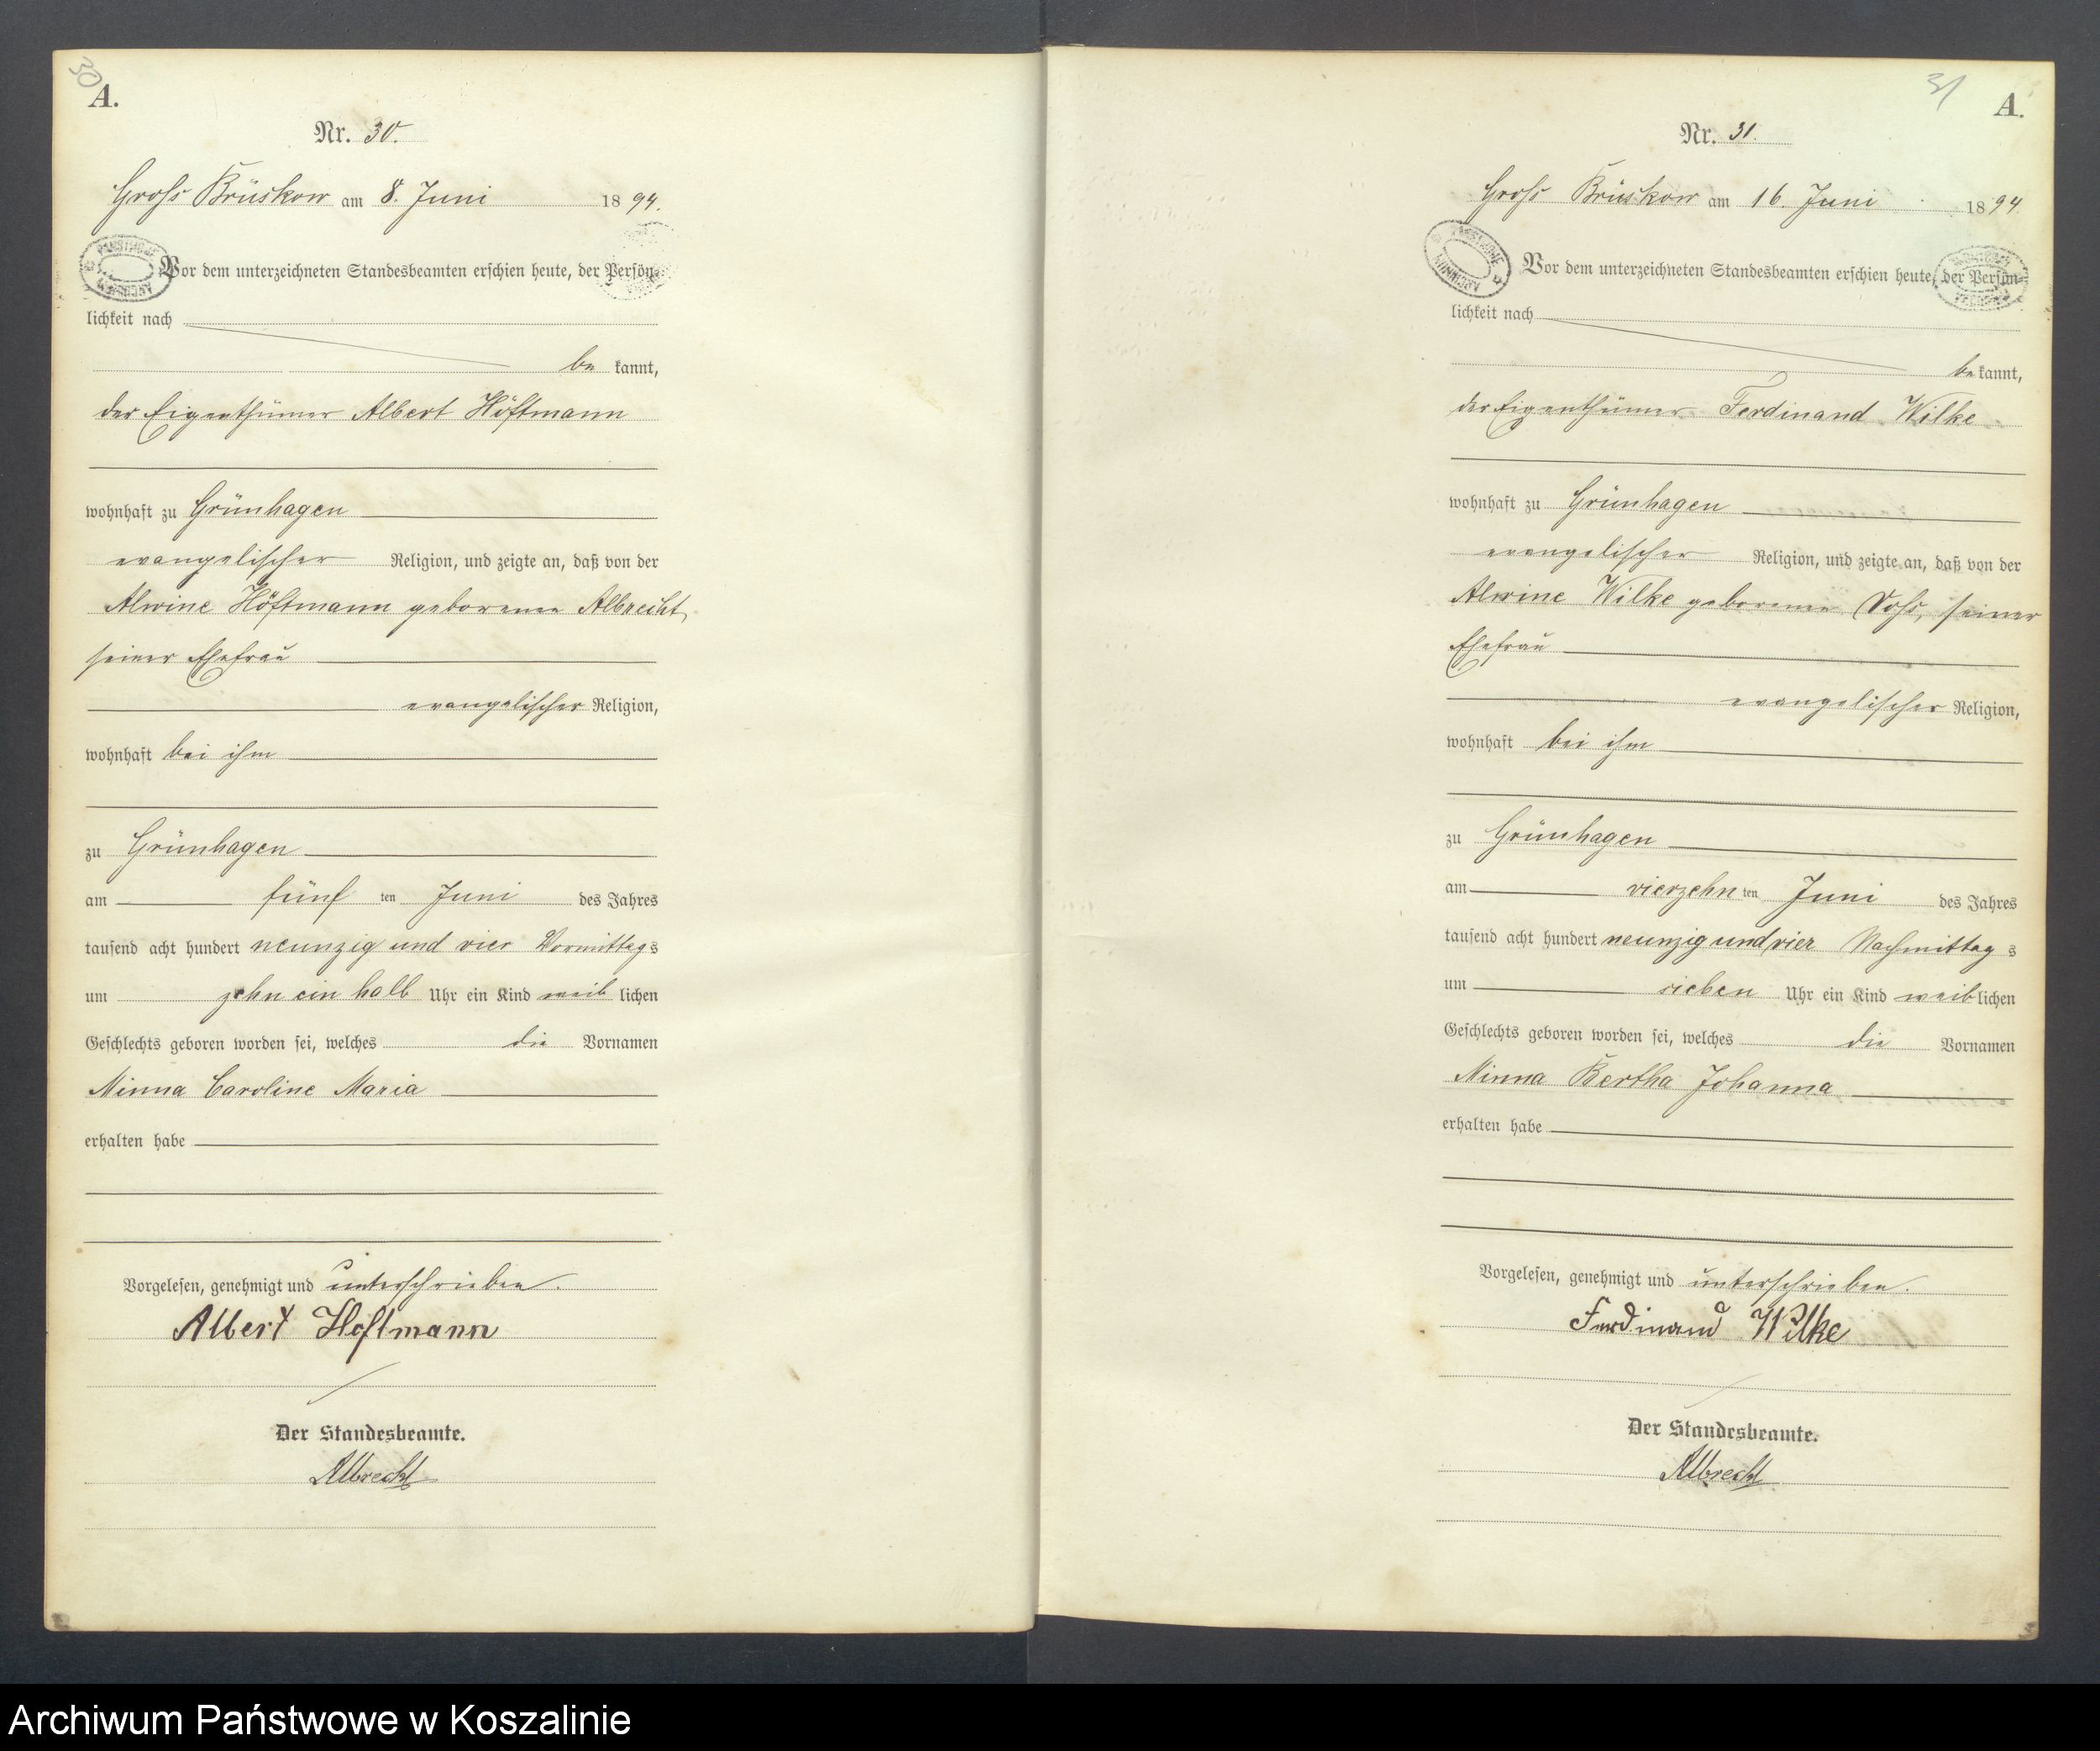 30
A.
Nr. 30.
Groß Brüskow am 8. Juni 1894.
Vor dem unterzeichneten Standesbeamten erschien heute, der Persön-
lichkeit nach
be kannt,
der Eigenthümer Albert Höftmann
wohnhaft zu Grünhagen
evangelischer Religion, und zeigte an, daß von der
Alwine Höftmann geborenen Albrecht,
seiner Ehefrau
evangelischer Religion,
wohnhaft bei ihm
zu Grünhagen
am fünf ten Juni des Jahres
tausend acht hundert neunzig und vier Vormittags
um zehn ein halb Uhr ein Kind weib lichen
Geschlechts geboren worden sei, welches die Vornamen
Minna Caroline Maria
erhalten habe
Vorgelesen, genehmigt und unterschrieben.
Albert Höftmann
Der Standesbeamte.
Albrecht
31
A.
Nr. 31.
Groß Brüskow am 16. Juni 1894.
Vor dem unterzeichneten Standesbeamten erschien heute, der Persön-
lichkeit nach
be kannt,
der Eigenthümer Ferdinand Wilke
wohnhaft zu Grünhagen
evangelischer Religion, und zeigte an, daß von der
Alwine Wilke geborenen Voß, seiner
Ehefrau
evangelischer Religion,
wohnhaft bei ihm
zu Grünhagen
am vierzehn ten Juni des Jahres
tausend acht hundert neunzig und vier Nachmittag s
um sieben Uhr ein Kind weib lichen
Geschlechts geboren worden sei, welches die Vornamen
Minna Bertha Johanna
erhalten habe
Vorgelesen, genehmigt und unterschrieben.
Ferdinand Wilke
Der Standesbeamte.
Albrecht
Archiwum Państwowe w Koszalinie